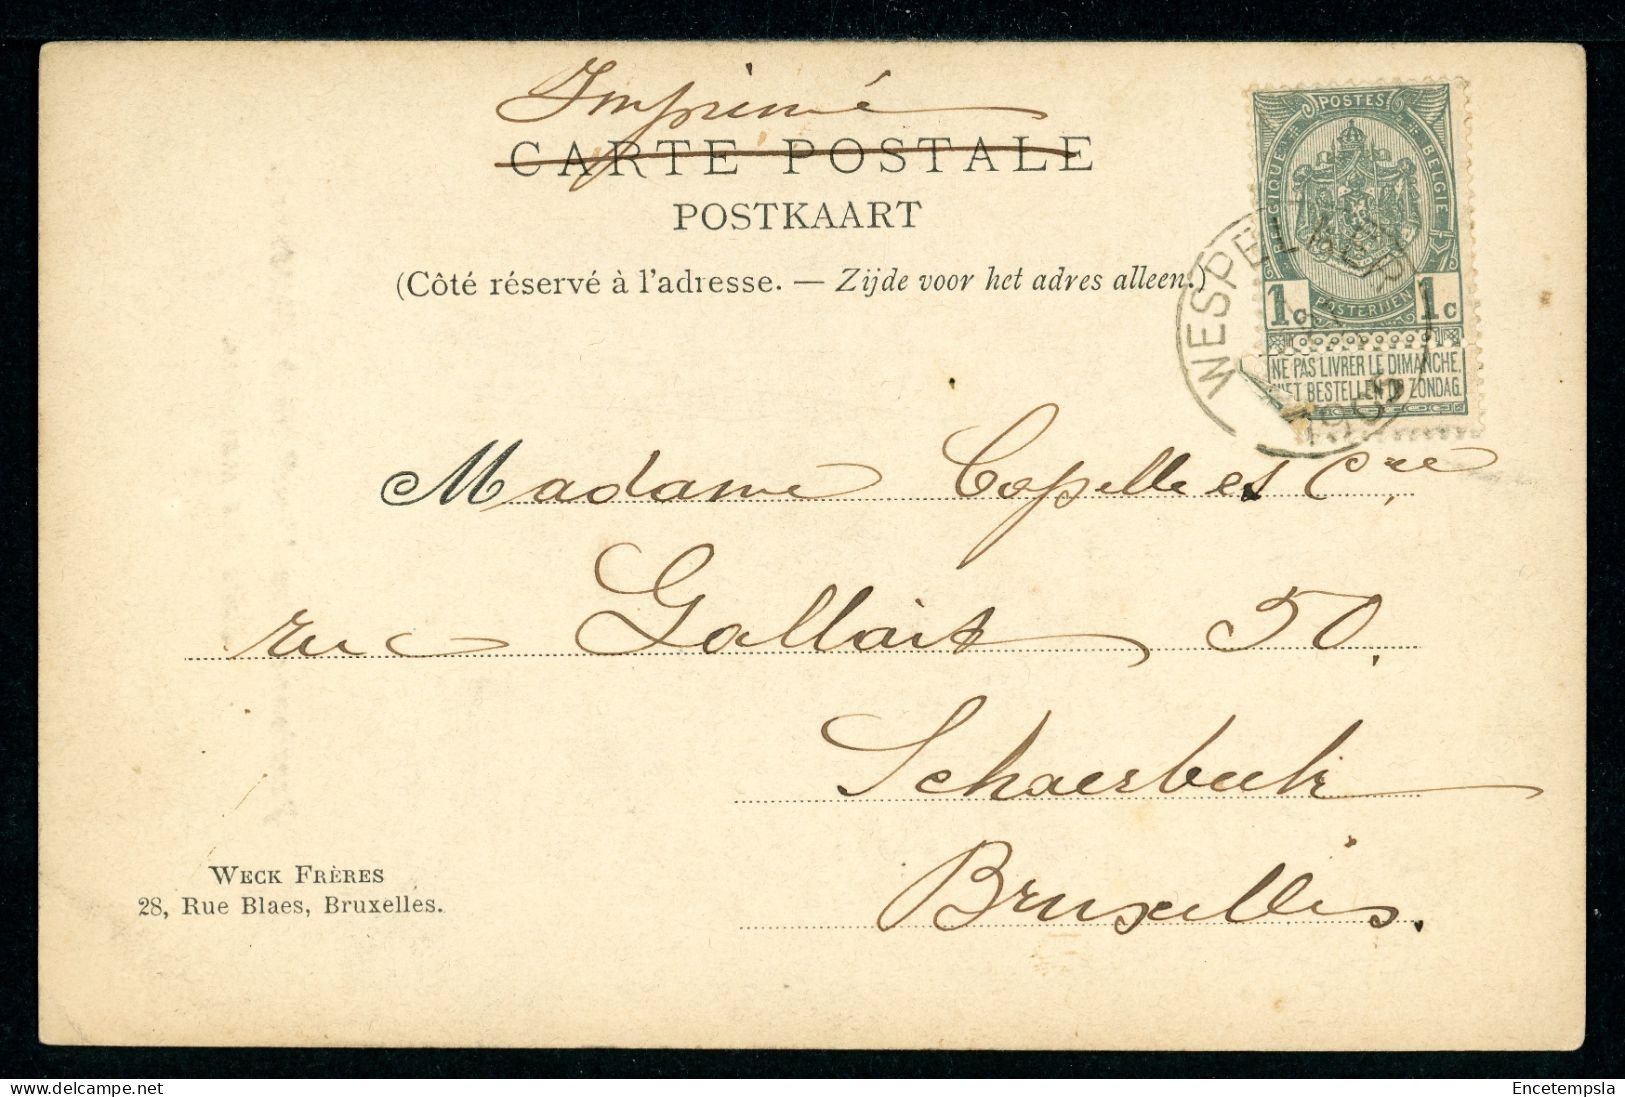 Imprimé
CARTE POSTALE
POSTKAART
(Côté réservé à l'adresse. — Zijde voor het adres alleen.)
POSTES
GIQUE BELGIE
POSTERIJEN
1c 1c
NE PAS LIVRER LE DIMANCHE,
NIET BESTELLEN OP ZONDAG.
WESPEL
Madame Capelle et Cie
rue Gallait 50.
Schaerbeek
Bruxelles.
WECK FRÈRES
28, Rue Blaes, Bruxelles.
delcampe.net
Encetempsla